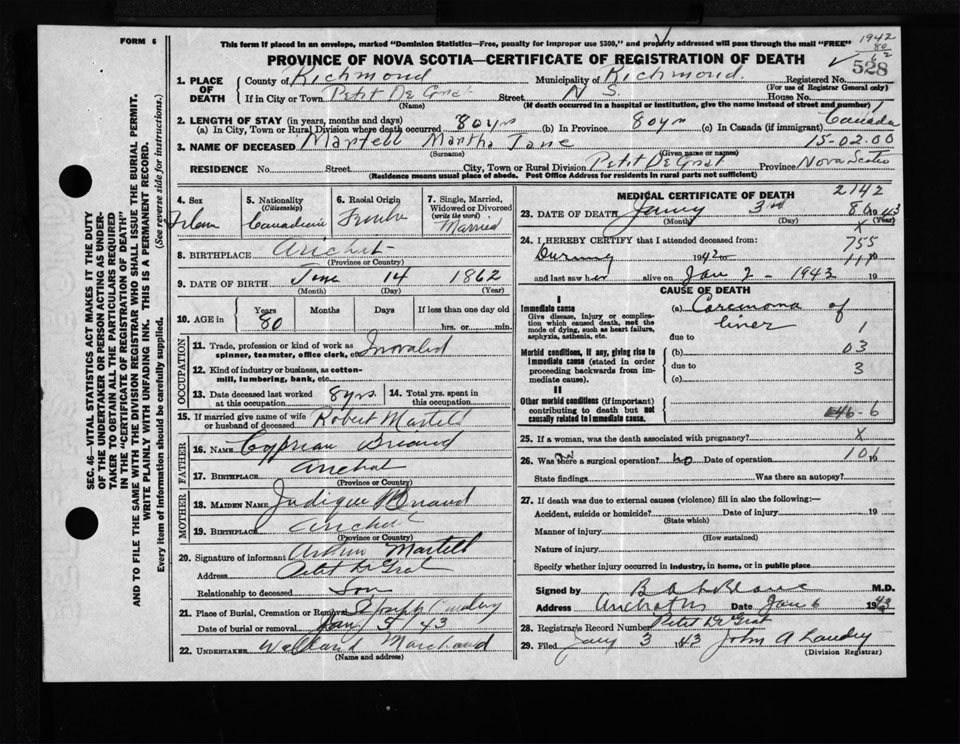 FORM 6
This form if placed in an envelope, marked "Dominion Statistics—Free, penalty for improper use $300," and properly addressed will pass through the mail "FREE"
1942
80
PROVINCE OF NOVA SCOTIA—CERTIFICATE OF REGISTRATION OF DEATH
528
1. PLACE OF DEATH County of Richmond Municipality of Richmond. Registered No.
(For use of Registrar General only)
If in City or Town Petit De Grat Street N S. House No.
(Name) (If death occurred in a hospital or institution, give the name instead of street and number)
2. LENGTH OF STAY (in years, months and days)
(a) In City, Town or Rural Division where death occurred 80 yrs (b) In Province 80 yrs (c) In Canada (if immigrant) Canada
3. NAME OF DECEASED Martell Martha Jane 15-02.00
(Surname) (Given name or names)
RESIDENCE No. Street City, Town or Rural Division Petit De Grat Province Nova Scotia
(Residence means usual place of abode. Post Office Address for residents in rural parts not sufficient)
SEC. 46—VITAL STATISTICS ACT MAKES IT THE DUTY
OF THE UNDERTAKER OR PERSON ACTING AS UNDER-
TAKER TO OBTAIN ALL THE PARTICULARS REQUIRED
IN THE "CERTIFICATE OF REGISTRATION OF DEATH"
AND TO FILE THE SAME WITH THE DIVISION REGISTRAR WHO SHALL ISSUE THE BURIAL PERMIT.
WRITE PLAINLY WITH UNFADING INK. THIS IS A PERMANENT RECORD.
Every item of information should be carefully supplied. (See reverse side for instructions.)
4. Sex
5. Nationality (Citizenship) Canadian
6. Racial Origin
7. Single, Married, Widowed or Divorced (write the word) Married
8. BIRTHPLACE Arichat
(Province or Country)
9. DATE OF BIRTH June 14 1862
(Month) (Day) (Year)
10. AGE in Years Months Days If less than one day old
80 hrs. or min.
OCCUPATION
11. Trade, profession or kind of work as spinner, teamster, office clerk, etc. Invalid
12. Kind of industry or business, as cotton-mill, lumbering, bank, etc.
13. Date deceased last worked at this occupation 8 yrs. 14. Total yrs. spent in this occupation
15. If married give name of wife or husband of deceased Robert Martell
FATHER
16. NAME Cyprian Briand
17. BIRTHPLACE Arichat
(Province or Country)
MOTHER
18. MAIDEN NAME Judique Briand
19. BIRTHPLACE Arichat
(Province or Country)
20. Signature of informant Martell
Address Petit De Grat
Relationship to deceased Son
21. Place of Burial, Cremation or Removal St Joseph
Date of burial or removal Jan 5 / 43
22. UNDERTAKER Marchand
(Name and address)
MEDICAL CERTIFICATE OF DEATH 2142
23. DATE OF DEATH Jany 3rd 80 1943
(Month) (Day)
x
24. I HEREBY CERTIFY that I attended deceased from: 755
During 1942 19
and last saw her alive on Jan 2 - 1943 19
CAUSE OF DEATH
I
Immediate cause
Give disease, injury or complication which caused death, not the mode of dying, such as heart failure, asphyxia, asthenia, etc.
(a) Carcinoma of
liver 1
due to
Morbid conditions, if any, giving rise to immediate cause (stated in order proceeding backwards from immediate cause).
(b) 03
due to 3
(c)
II
Other morbid conditions (if important) contributing to death but not causally related to immediate cause.
46-6
25. If a woman, was the death associated with pregnancy? x
26. Was there a surgical operation? no Date of operation 19
State findings Was there an autopsy?
27. If death was due to external causes (violence) fill in also the following:—
Accident, suicide or homicide? Date of injury 19
(State which)
Manner of injury
(How sustained)
Nature of injury
Specify whether injury occurred in industry, in home, or in public place
Signed by B A LeBlanc M.D.
Address Arichat NS Date Jan 6 1943
28. Registrar's Record Number Petit De Grat
29. Filed Jany 3 1943 John A Landry
(Division Registrar)